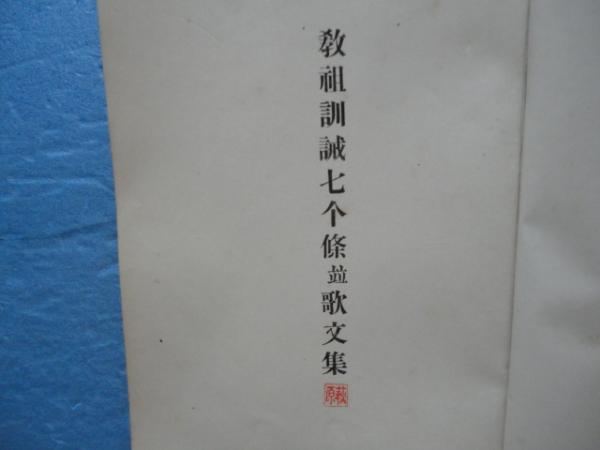 教祖訓誡七个條並歌文集
萩原